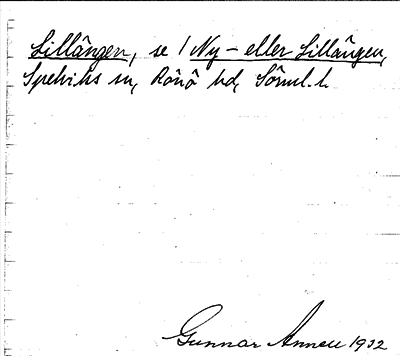 Lillängen, se / Ny- eller Lillängen,
Spelviks sn, Rönö hd, Sörml. l.
Gunnar Annell 1932